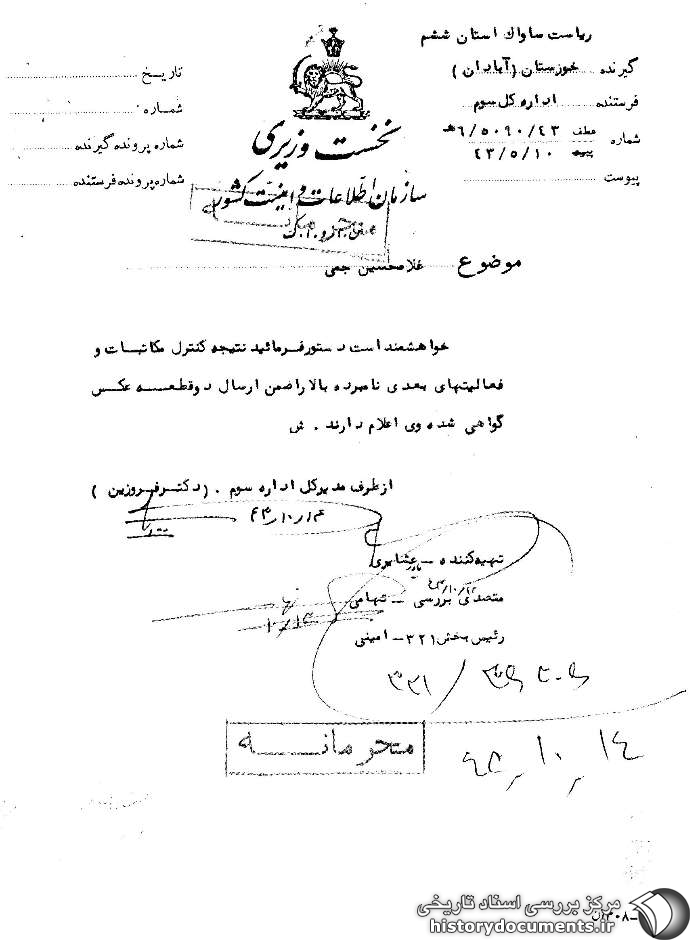 ریاست ساواک استان ششم
گیرنده خوزستان (آبادان)
فرستنده اداره کل سوم
شماره عطف ۶/۵۰۹۰/۴۳هـ
۴۳/۵/۱۰
پیوست
تاریخ
شماره
شماره پرونده گیرنده
شماره پرونده فرستنده
نخست وزیری
سازمان اطلاعات و امنیت کشور
موضوع غلامحسین جمی
خواهشمند است دستور فرمائید نتیجه کنترل مکاتبات و
فعالیتهای بعدی نامبرده بالا را ضمن ارسال دو قطعه عکس
گواهی شده وی اعلام دارند . ش
از طرف مدیر کل اداره سوم . (دکتر فروزین )
تهیه کننده – عشایری
متصدی بررسی – تهامی
رئیس بخش ۳۲۱ – امینی
۳۲۱ /
محرمانه
۱۴ ,۱۰ ,۴۳
مرکز بررسی اسناد تاریخی
historydocuments.ir